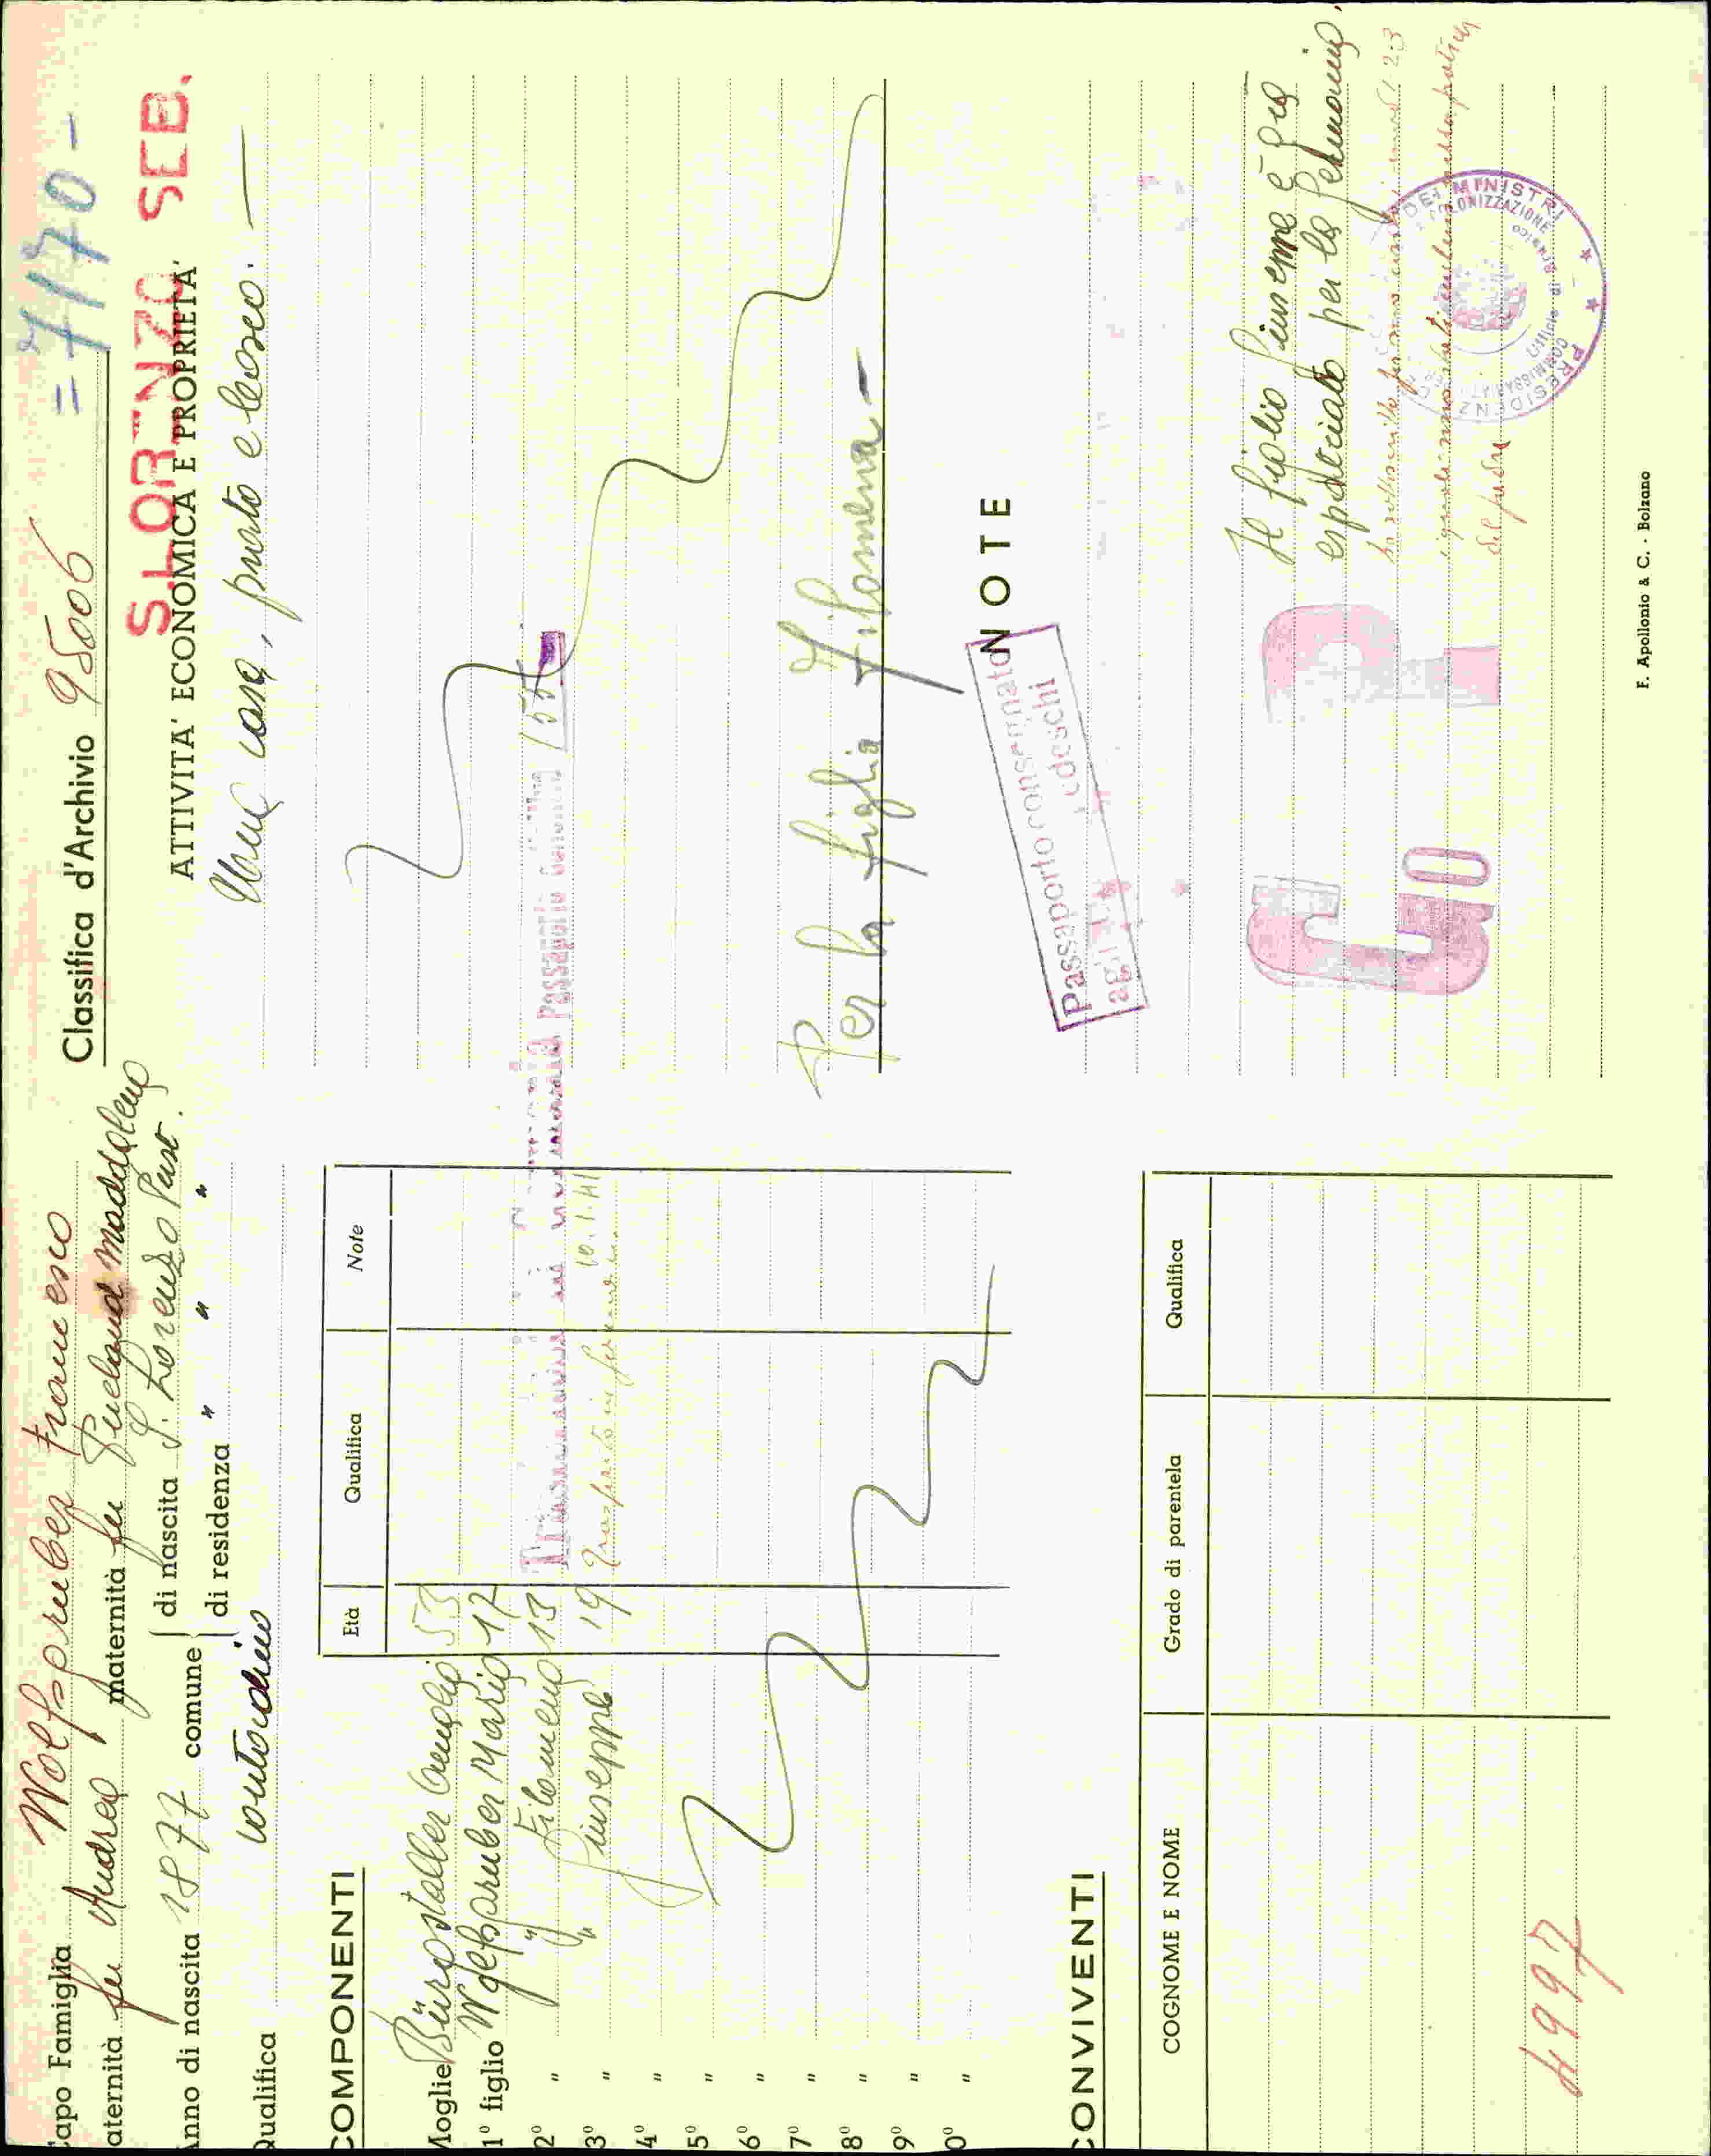 Capo Famiglia Wolfsgruber Francesco
aternità fu Andrea maternità fu Maddalena
Anno di nascita 1877 comune di nascita S. Lorenzo Pust.
di residenza " " " "
Qualifica contadino
COMPONENTI
Età Qualifica Note
Moglie Bürgstaller 53
1° figlio Wolfsgruber Maria 17
2° " " Filomena 13
3° " " Giuseppe 19 Trasferito in Germania 10.1.41
4° "
5° "
6° "
7° "
8° "
9° "
0° "
CONVIVENTI
COGNOME E NOME Grado di parentela Qualifica
4997
Classifica d'Archivio 95006
= 7170 -
S. LORENZO SEB.
ATTIVITA' ECONOMICA E PROPRIETA'
Una casa, prato e bosco. —
Passaporto
Per la figlia Filomena —
NOTE
Passaporto consegnato
agli
Il figlio Giuseppe è già
espatriato per la Germania.
del padre
PRESIDENZA DEI MINISTRI
Ufficio di
F. Apollonio & C. - Bolzano